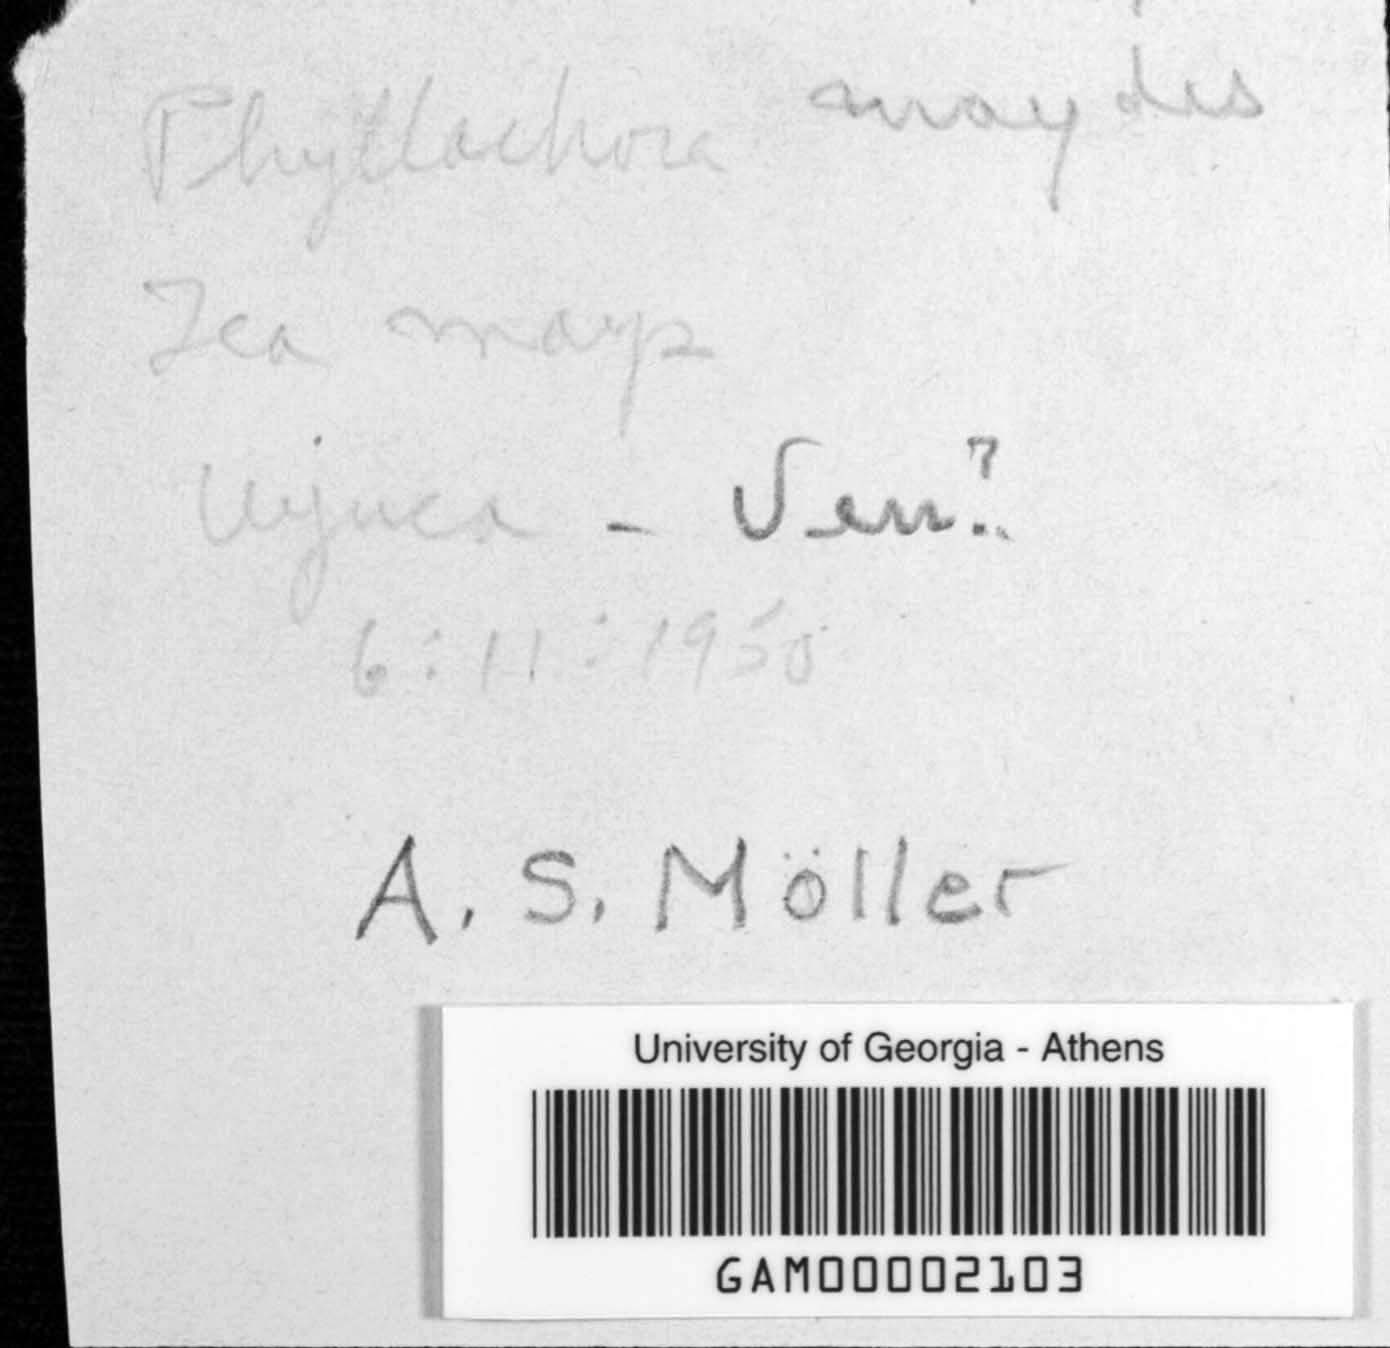 Phyllachora maydis
Zea mays
- Ven?
6:11:1950
A. S. Möller
University of Georgia - Athens
GAM00002103